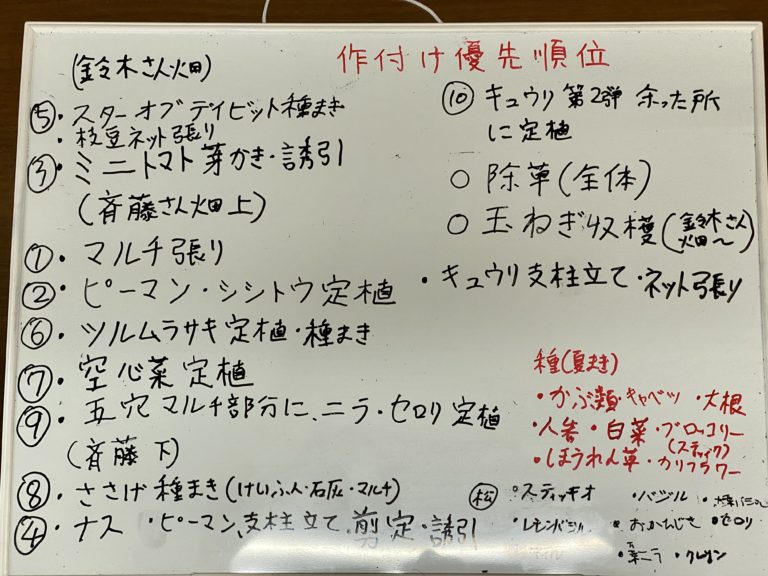 作付け優先順位
(鈴木さん畑)
⑤・スターオブデイビット種まき
・枝豆ネット張り
③・ミニトマト芽かき・誘引
(斉藤さん畑上)
①・マルチ張り
②・ピーマン・シシトウ定植
⑥・ツルムラサキ定植・種まき
⑦・空心菜定植
⑨・五穴マルチ部分に、ニラ・セロリ定植
(斉藤 下)
⑧・ささげ種まき(けいふん・石灰・マルチ)
④・ナス・ピーマン、支柱立て、剪定・誘引
⑩キュウリ 第2弾 余った所
に定植
○除草(全体)
○玉ねぎ収穫(鈴木さん
畑〜)
・キュウリ支柱立て・ネット張り
種(夏まき)
・かぶ類・キャベツ ・大根
・人参・白菜・ブロッコリー
(スティック)
・ほうれん草・カリフラワー
松 ・スティッキオ ・バジル
・レモンバジル ・おかひじき ・セロリ
ニラ